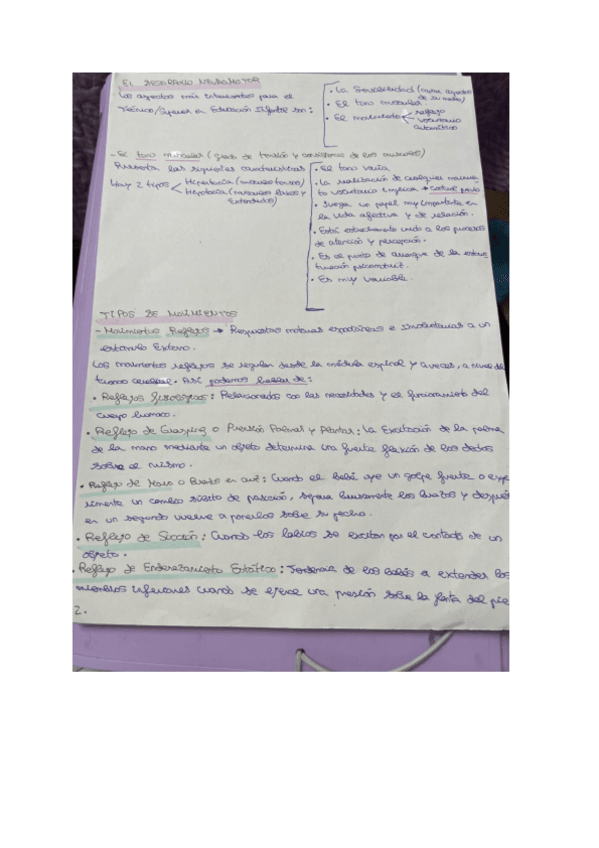 EL DESARROLLO NEUROMOTOR
Los aspectos más interesantes para el
Técnico/Superior en Educación Infantil son:
• La Sensibilidad (capta aspectos
de su medio)
• El tono muscular.
• El movimiento
reflejo
voluntario
automático
- El tono muscular (grado de tensión y consistencia de los músculos)
Presenta las siguientes características
Hay 2 tipos
Hipertonía (músculo tenso)
Hipotonía (músculos laxos y
extendidos)
• El tono varía
• La realización de cualquier movimien
to voluntario implica → control previo
• Juega un papel muy importante en
la vida afectiva y de relación.
• Está estrechamente unido a los procesos
de atención y percepción.
• Es el punto de arranque de la estruc
turación
• Es muy variable.
TIPOS DE MOVIMIENTOS
- Movimientos Reflejos → Respuestas motoras espontáneas e involuntarias a un
estímulo externo.
Los movimientos reflejos se regulan desde la médula espinal y a veces, a nivel del
tronco cerebral. Así podemos hablar de:
• Reflejos fisiológicos: Relacionados con las necesidades y el funcionamiento del
cuerpo humano.
• Reflejo de Grasping o Presión Palmar y Plantar: La Excitación de la palma
de la mano mediante un objeto determina una fuerte flexión de los dedos
sobre el mismo.
• Reflejo de Moro o Brazos en cruz: Cuando el bebé oye un golpe fuerte o expe
rimenta un cambio súbito de posición, separa bruscamente los brazos y después
en un segundo vuelve a ponerlos sobre su pecho.
• Reflejo de Succión: Cuando los labios se excitan por el contacto de un
objeto.
• Reflejo de Enderezamiento Estático: Tendencia de los bebés a extender los
miembros inferiores cuando se ejerce una presión sobre la planta del pie
2.